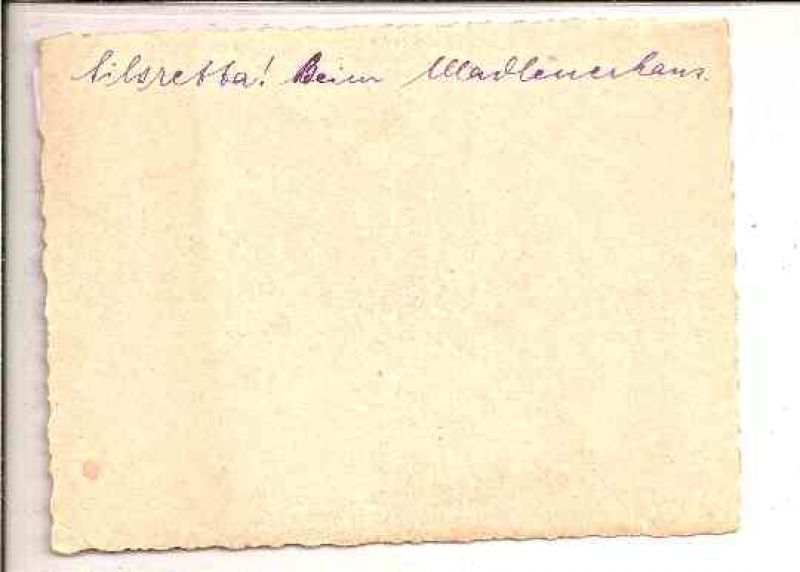 Silvretta! Beim Madlenerhaus.